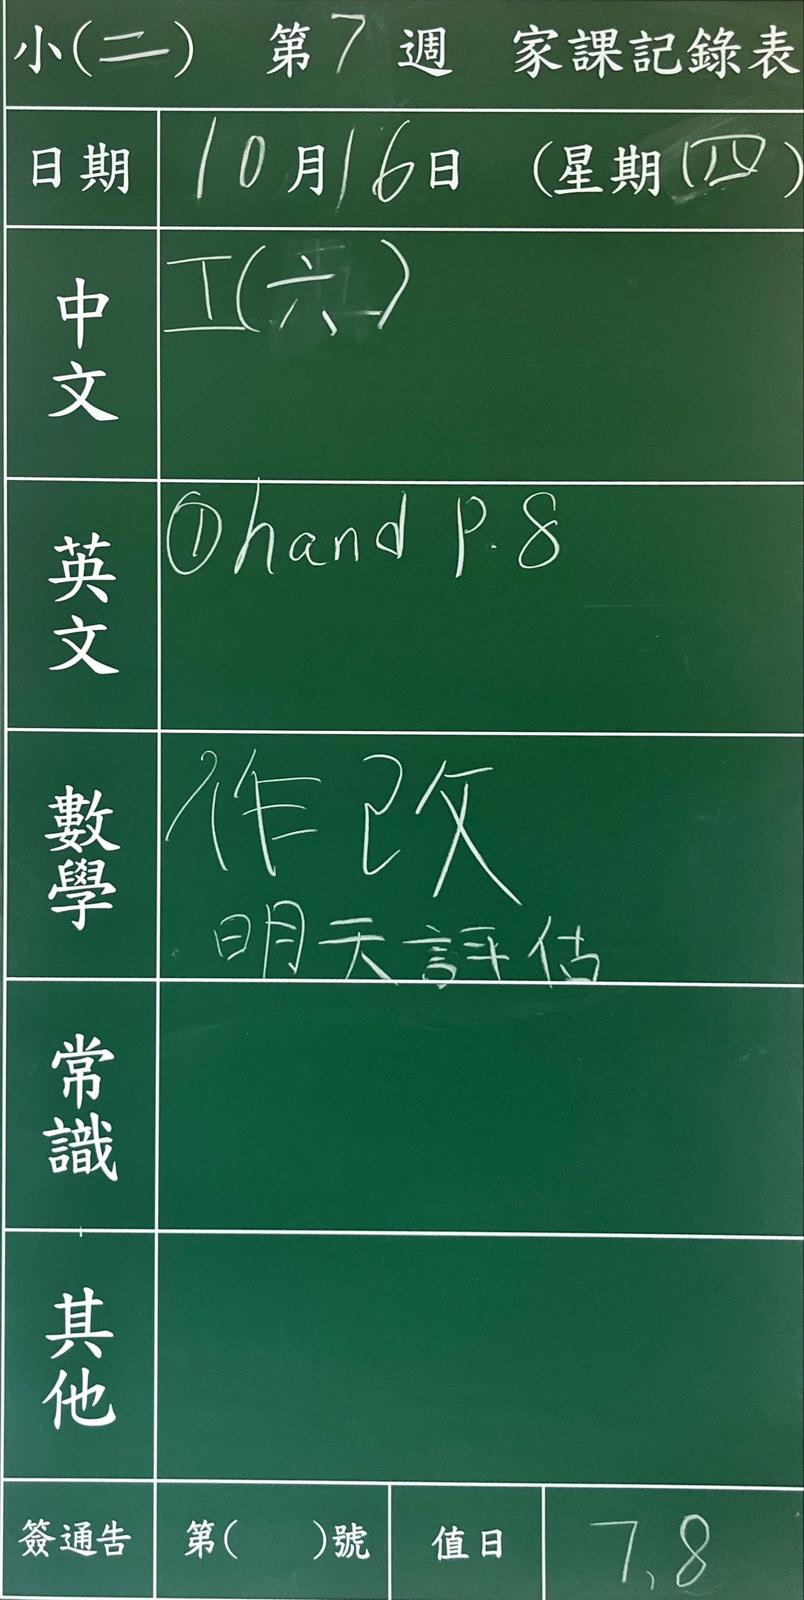 小(二) 第7週 家課記錄表
日期 10月16日 (星期四)
中文 工(六)
英文 ①hand P.8
數學 作改
明天評估
常識
其他
簽通告 第( )號 值日 7,8